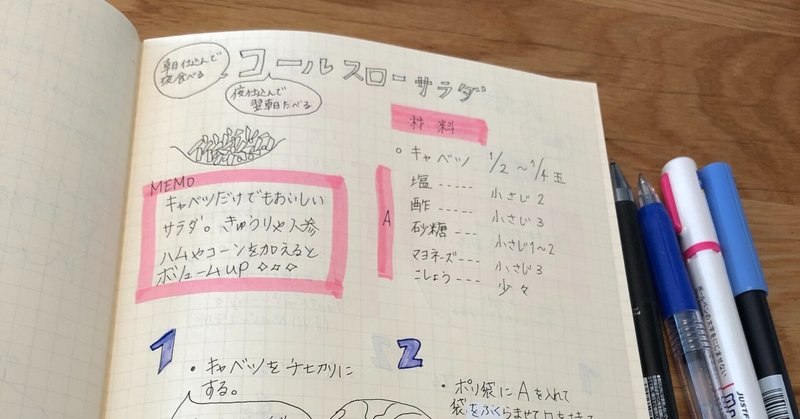 コールスローサラダ
朝仕込んで
夜食べる
夜仕込んで
翌朝たべる
材料
キャベツ 1/2〜1/4玉
A
塩 ----- 小さじ2
酢 ----- 小さじ3
砂糖 --- 小さじ1〜2
マヨネーズ--- 小さじ3
こしょう--- 少々
MEMO
キャベツだけでもおいしい
サラダ。きゅうりや人参
ハムやコーンを加えると
ボリュームup ◇◇◇
1
・キャベツを千切りに
する。
2
・ポリ袋にAを入れて
袋をふくらませて口を